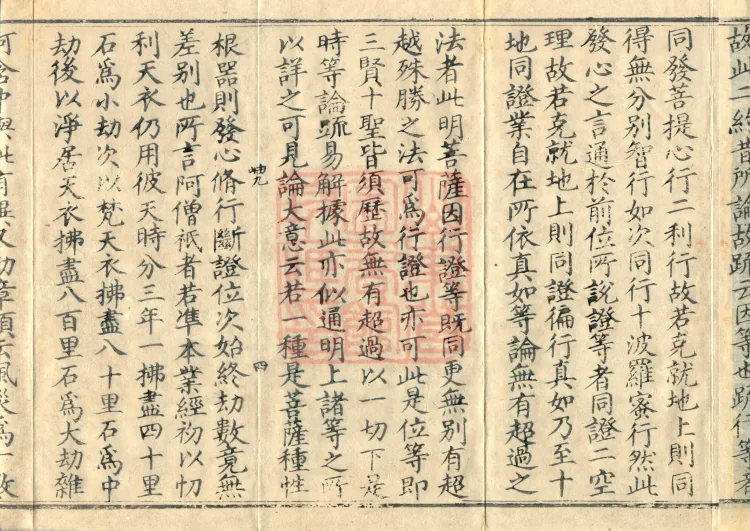 故此二終皆所論故疏云因等也疏行等者
同發菩提心行二利行故若克就地上則同
得無分別智行如次同行十波羅蜜行然此
發心之言通於前位所說證等者同證二空
理故若克就地上則同證徧行真如乃至十
地同證業自在所依真如等論無有超過之
法者此明菩薩因行證等既同更無別有超
越殊勝之法可為行證也亦可此是位等即
三賢十聖皆須歷故無有超過以一切下是
時等論疏易解據此亦似通明上諸等之所
以詳之可見論大意云若一種是菩薩種性
根器則發心脩行斷證位次始終劫數竟無
差別也所言阿僧祇者若準本業經初以忉
利天衣仍用彼天時分三年一拂盡四十里
石為小劫次以梵天衣拂盡八十里石為中
劫後以淨居天衣拂盡八百里石為大劫雜
四